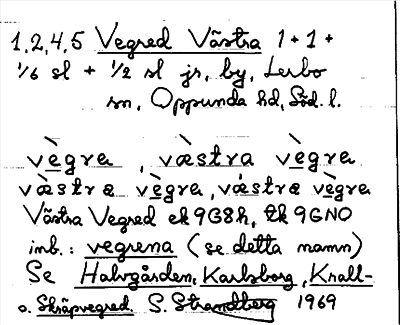 1,2,4,5 Vegred Västra 1 + 1 +
1/6 sl + 1/2 sl jr, by, Lerbo
sn, Oppunda hd, Söd. l.
vègra, væ̀stra vègra
væ̀stra vègra, væ̀stra vègra
Västra Vegred ek 9G8h, tk 9GNO
inb.: vegrena (se detta namn)
Se Halvgården, Karlsborg, Knall-
o. Skräpvegred. S. Strandberg 1969